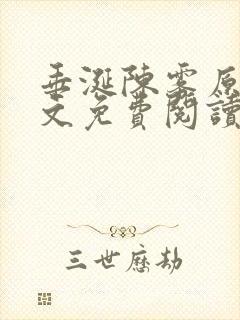 垂涎陳雾原
文免費閱讀
三世歷劫